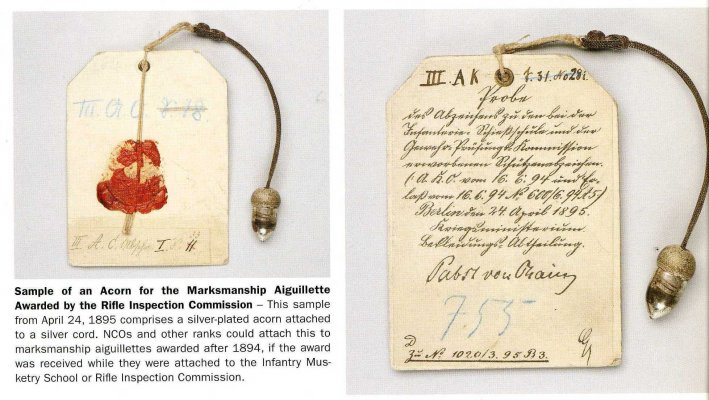 III. A. C.
III. A. C.
Sample of an Acorn for the Marksmanship Aiguillette
Awarded by the Rifle Inspection Commission – This sample
from April 24, 1895 comprises a silver-plated acorn attached
to a silver cord. NCOs and other ranks could attach this to
marksmanship aiguillettes awarded after 1894, if the award
was received while they were attached to the Infantry Mus-
ketry School or Rifle Inspection Commission.
III. A K
Probe
des Abzeichens zu den bei der
Infanterie-Schießschule und der
Gewehr-Prüfungs-Kommission
erworbenen Schützenabzeichen.
(A. K. O. vom 16. 6. 94 und Er-
laß vom 16. 6. 94 No 600/6. 94
Berlin den 24 April 1895.
Kriegsministerium.
Bekleidungs-Abtheilung.
Pabst von
755
Zu No 1020/3. 95 B 3.